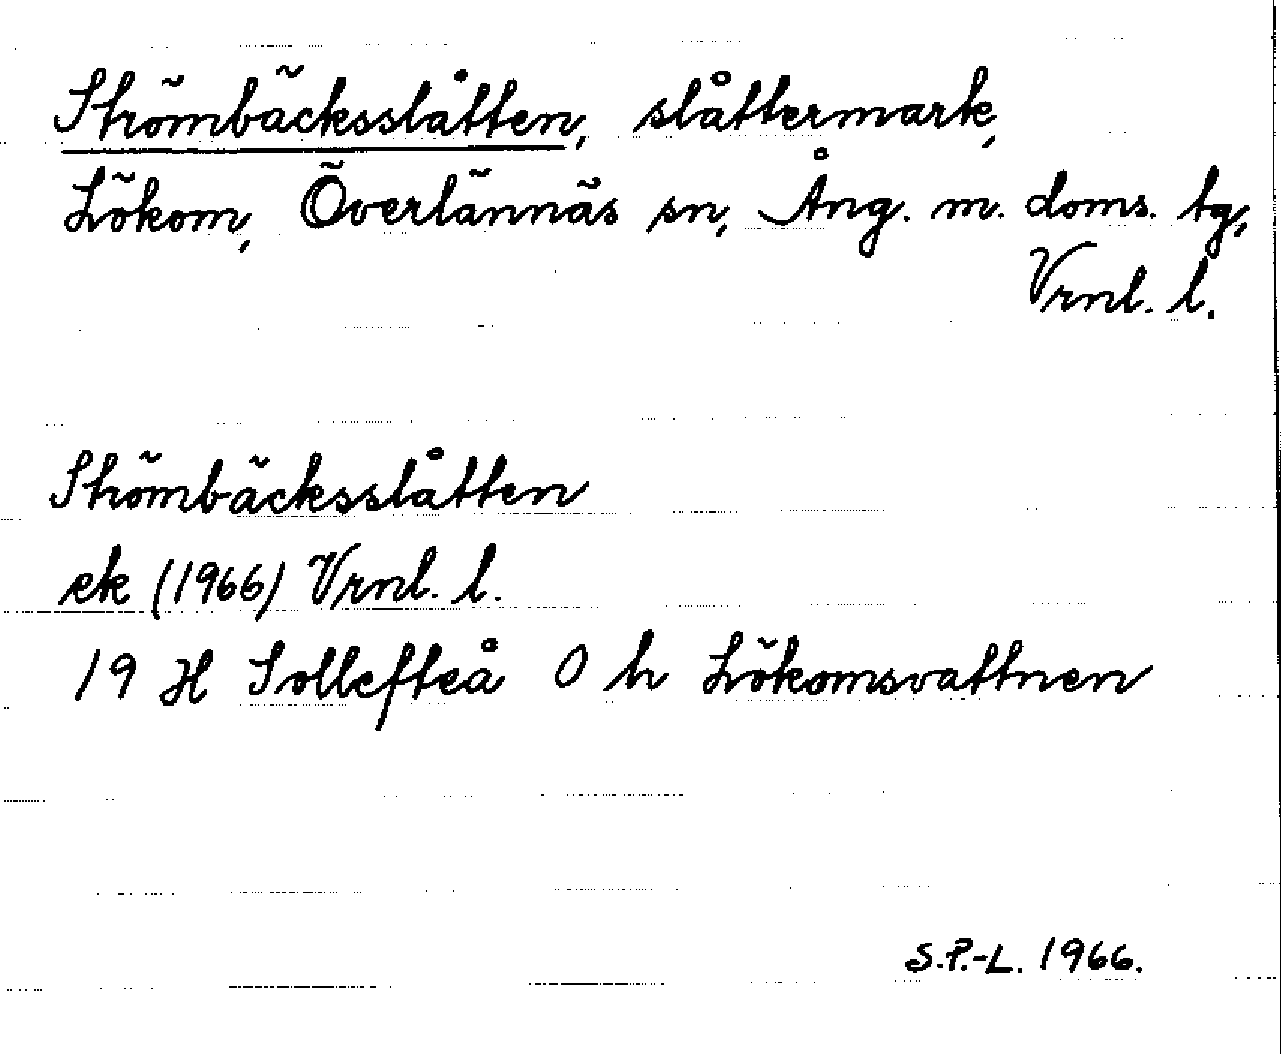 Strömbäcksslåtten, slåttermark,
Lökom, Överlännäs sn, Ång. m. doms. tg,
Vrnl. l.
Strömbäcksslåtten
ek (1966) Vrnl. l.
19 H Sollefteå 0 h Lökomsvattnen
S.P.-L. 1966.